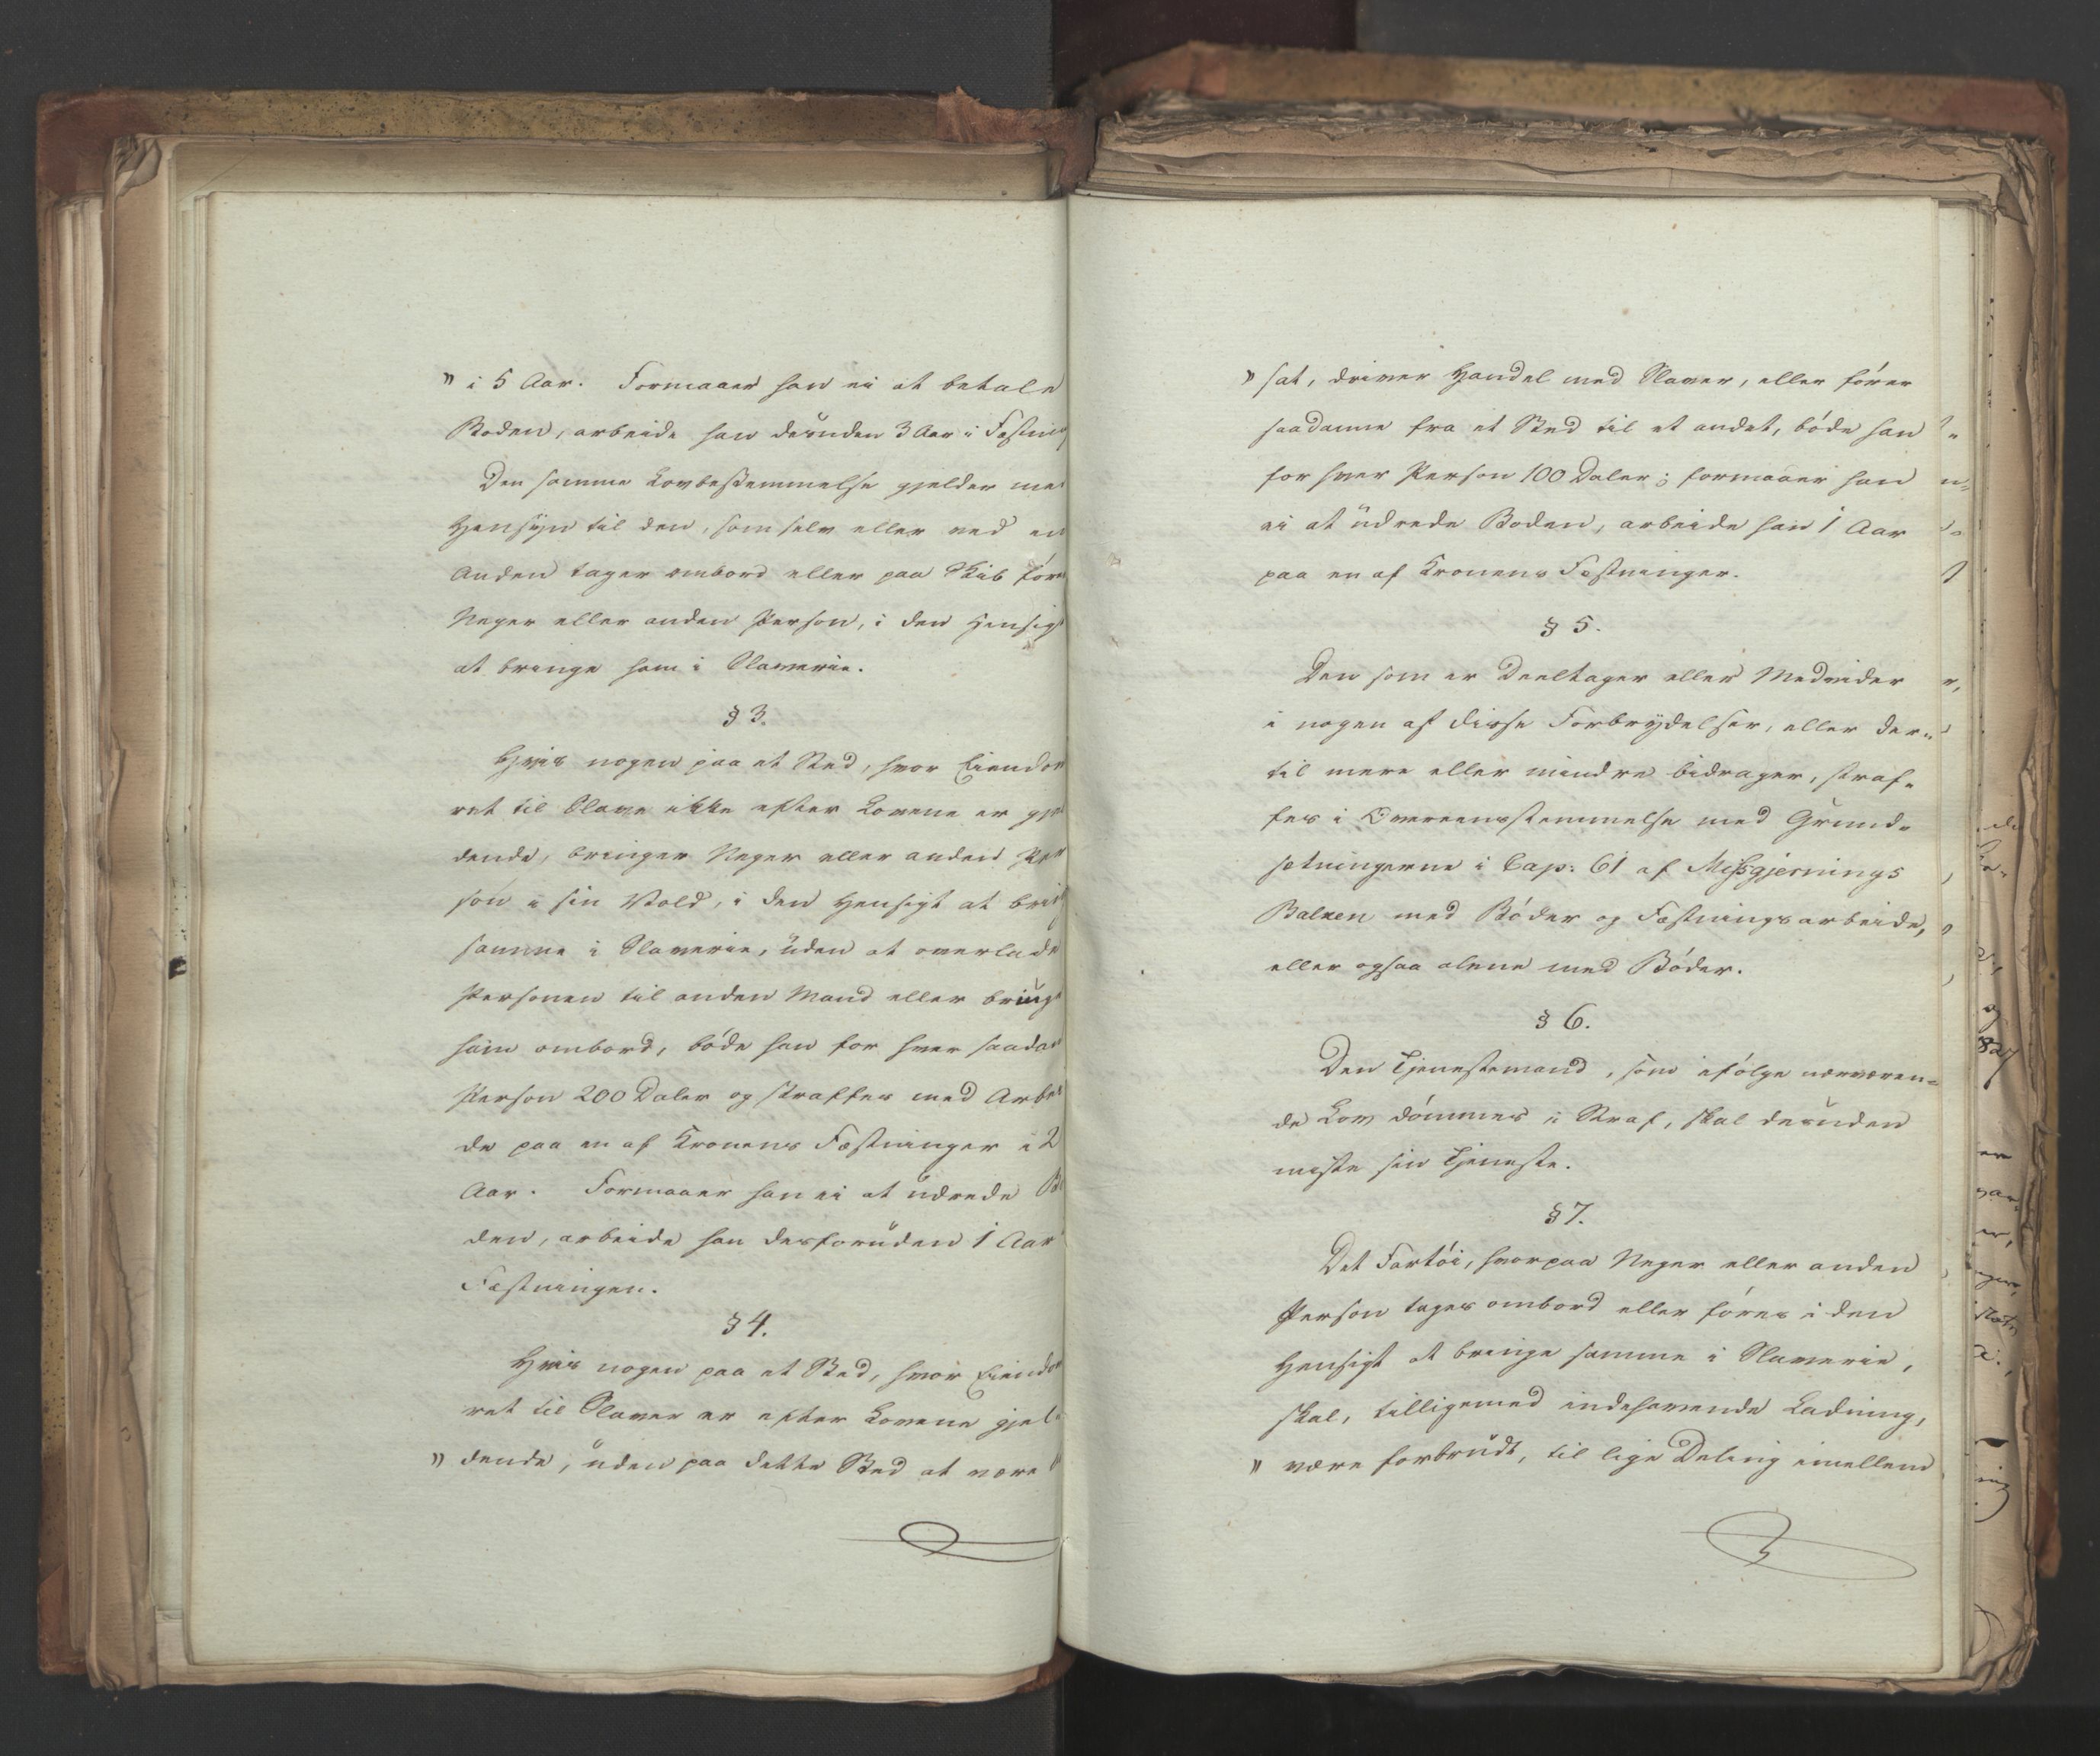 " i 5 Aar. Formaaer han ei at betale
Boden, arbeide han desuden 3 Aar i Fæstning
Den samme Lovbestemmelse gjelder med
Hensyn til den, som selv eller ved en
Anden tager ombord eller paa Skib fører
Neger eller anden Person, i den Hensigt
at bringe ham i Slaverie.
§ 3.
Hvis nogen paa et Sted, hvor Eiendoms
ret til Slave ikke efter Lovene er gjel
dende, bringer Neger eller anden Per
son i sin Vold, i den Hensigt at bringe
samme i Slaverie, uden at overlade
Personen til anden Mand eller bringe
ham ombord, bøde han for hver saadan
Person 200 Daler og straffes med Arbei
de paa en af Kronens Fæstninger i 2
Aar. Formaaer han ei at udrede Bo
den, arbeide han desforuden 1 Aar
Fæstningen.
§ 4.
Hvis nogen paa et Sted, hvor Eiendoms
ret til Slaver er efter Lovene gjel-
" dende, uden paa dette Sted at være
" sat, driver Handel med Slaver, eller fører
saadanne fra et Sted til et andet, bøde han
for hver Person 100 Daler; formaaer han
ei at udrede Boden, arbeide han 1 Aar
paa en af Kronens Fæstninger.
§ 5.
Den som er Deeltager eller Medvider
i nogen af disse Forbrydelser, eller der-
til mere eller mindre bidrager, straf-
fes i Overeensstemmelse med Grund-
sætningerne i Cap: 61 af Missgjernings
Balken med Bøder og Fæstningsarbeide,
eller ogsaa alene med Bøder.
§ 6.
Den Tjenestemand, som ifølge nærværen-
de Lov dømmes i Straf, skal desuden
miste sin Tjeneste.
§ 7.
Det Fartøi, hvorpaa Neger eller anden
Person tages ombord eller føres i den
Hensigt at bringe samme i Slaverie,
skal, tilligemed indehavende Ladning,
" være forbrudt, til lige Deling imellem